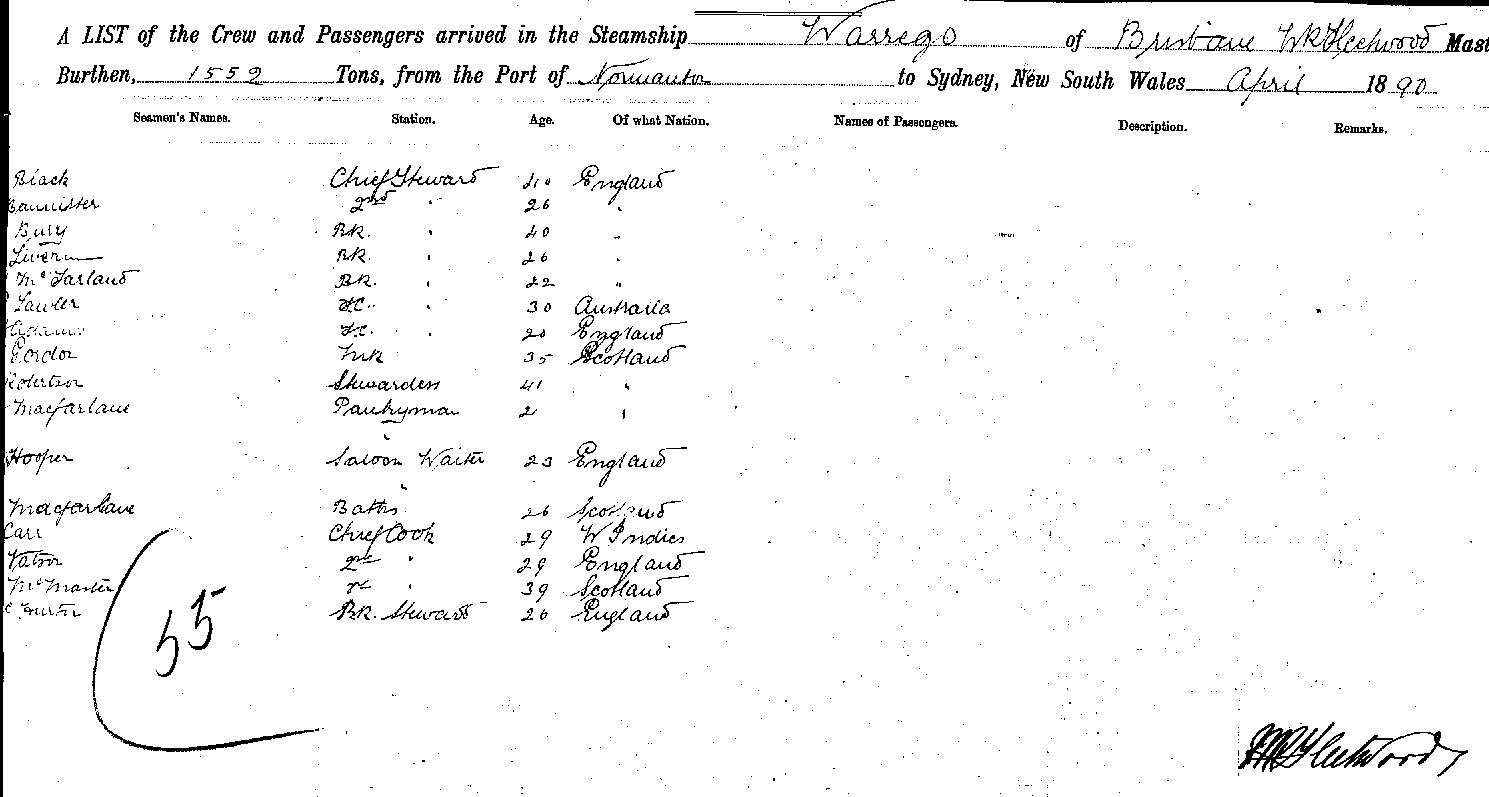 A LIST of the Crew and Passengers arrived in the Steamship Warrego of Brisbane Fleetwood Mast
Burthen, 1552 Tons, from the Port of Normanton to Sydney, New South Wales April 1890
Seamen's Names. Station. Age. Of what Nation. Names of Passengers. Description. Remarks.
Black Chief Steward 40 England
Bannister 2nd " 26 "
Bury BR. " 40 "
BR. " 26 "
McFarland BR. " 22 "
Lawler F.C. " 30 Australia
Adams F.C. " 20 England
Gordon 35 Scotland
Robertson Stewardess 41 "
Macfarlane Pantryman 2 "
"
Hooper Saloon Waiter 23 England
"
Macfarlane Baths 26 Scotland
Carr Chief Cook 29 W Indies
Watson 2nd " 29 England
McMaster " 39 Scotland
BR. Steward 20 England
55
Fleetwood